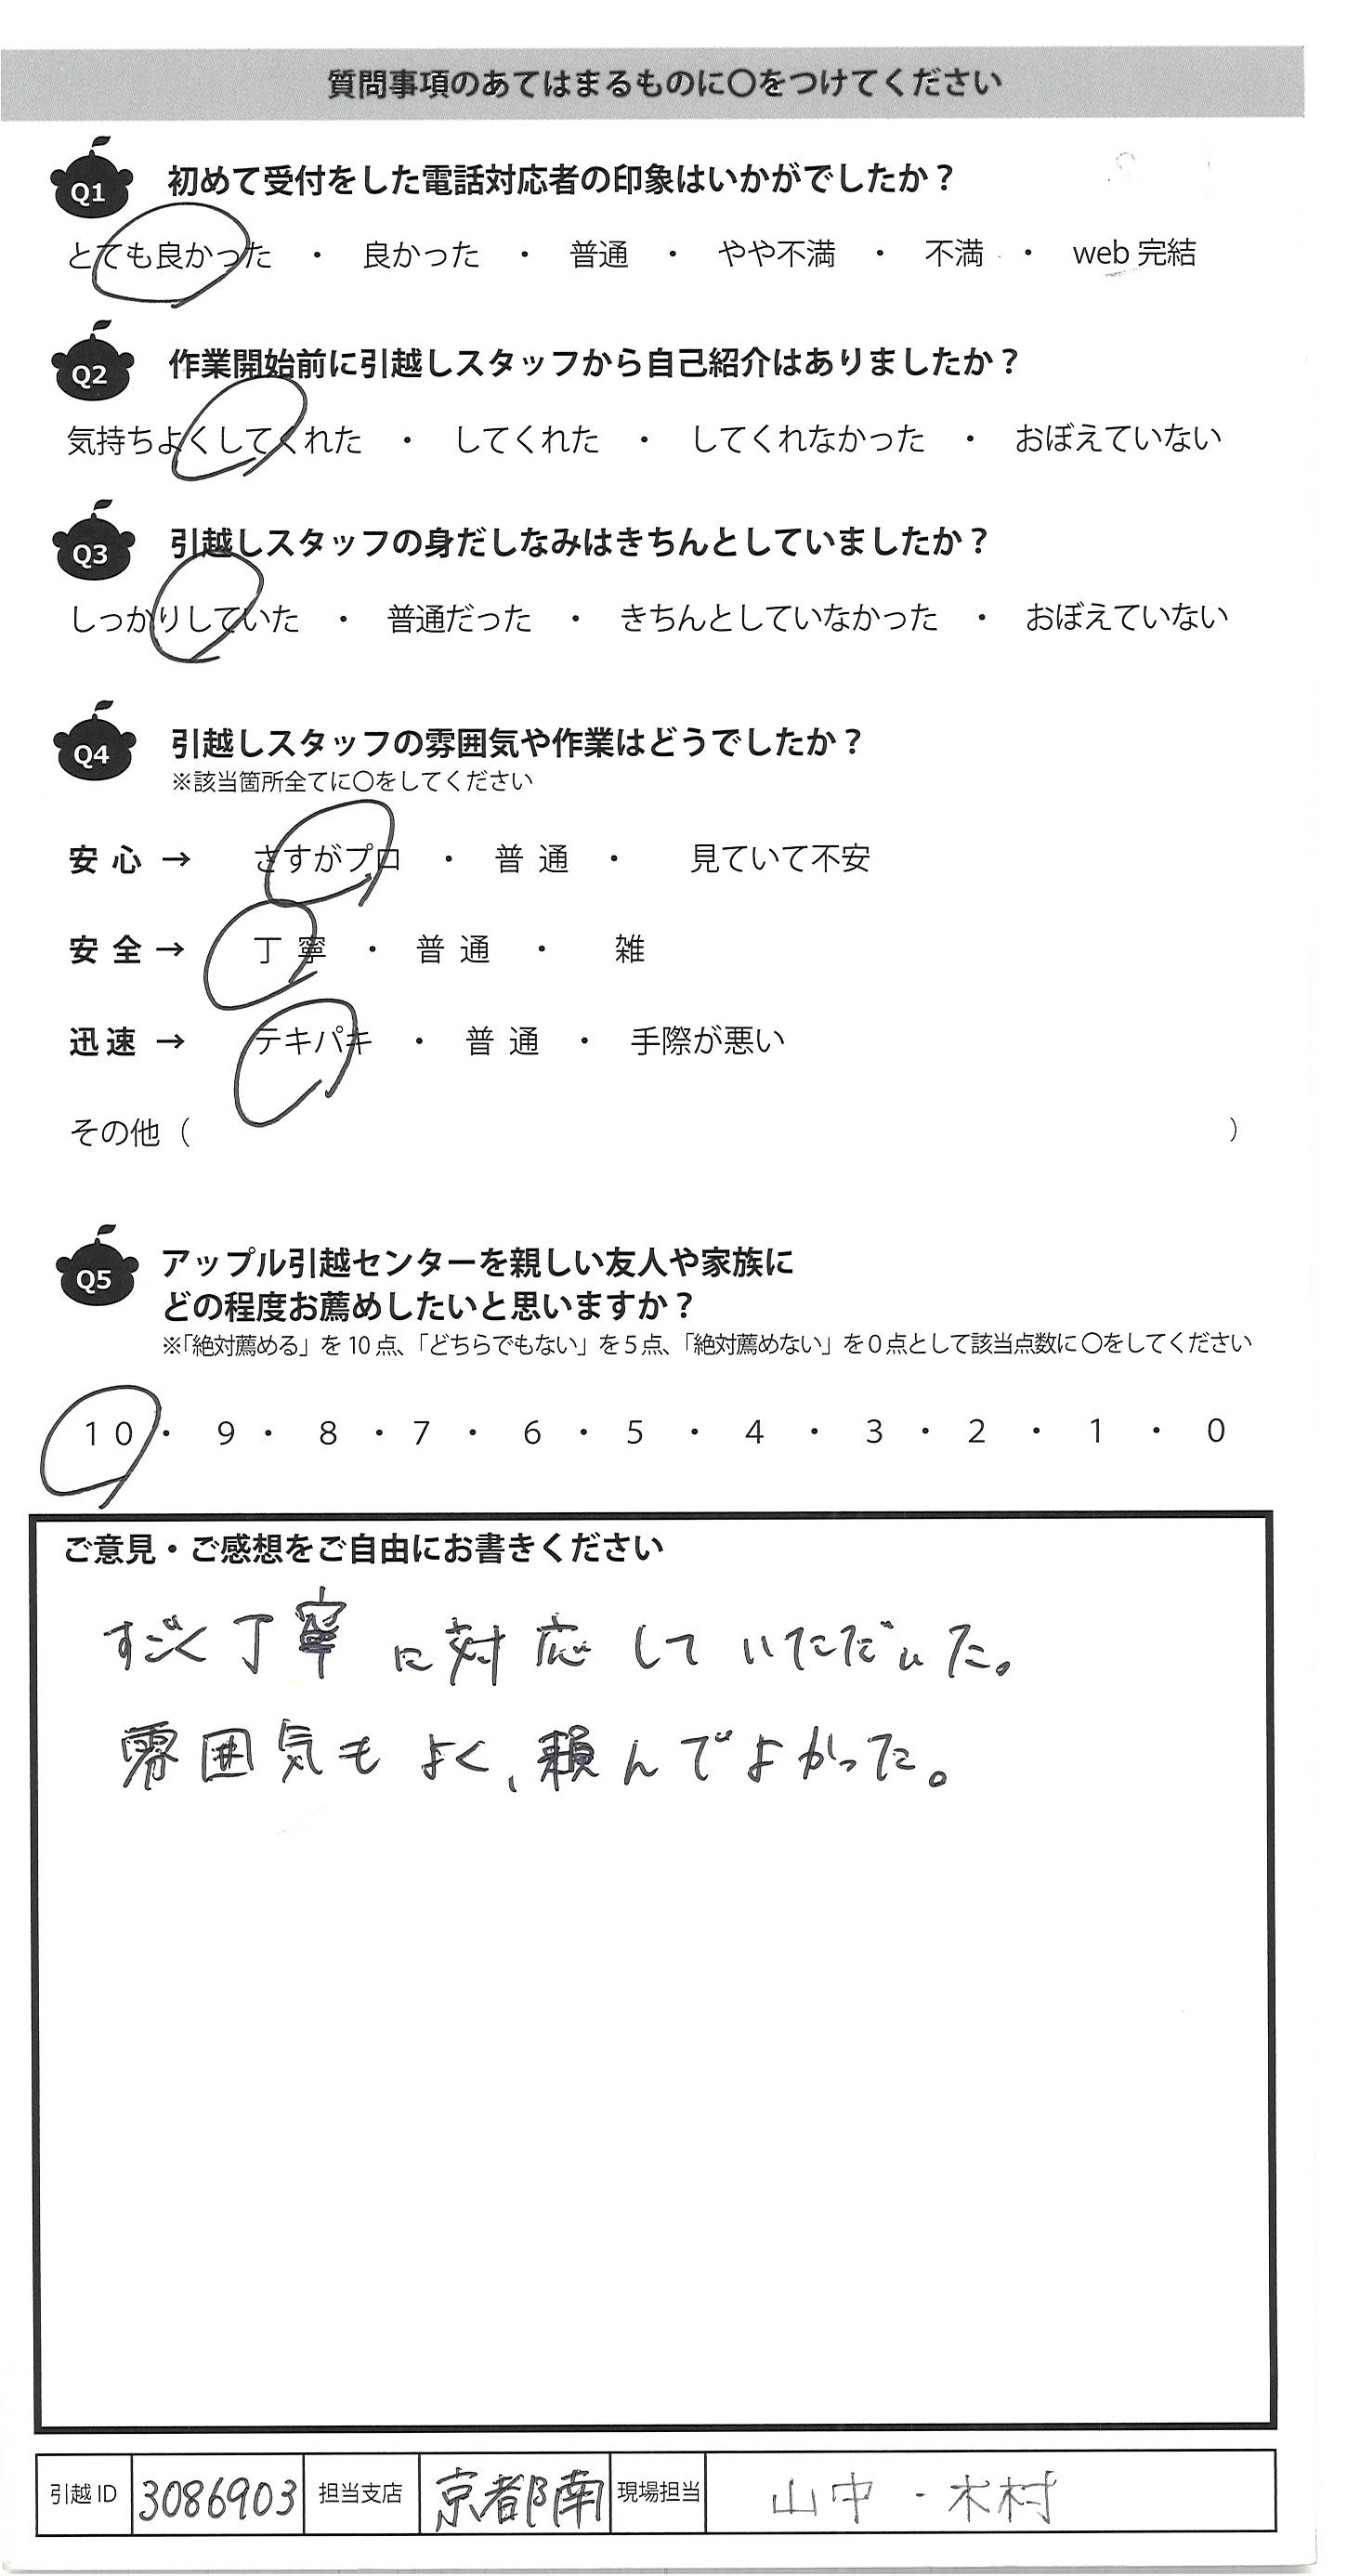 質問事項のあてはまるものに〇をつけてください
Q1 初めて受付をした電話対応者の印象はいかがでしたか？
とても良かった ・ 良かった ・ 普通 ・ やや不満 ・ 不満 ・ web 完結
Q2 作業開始前に引越しスタッフから自己紹介はありましたか？
気持ちよくしてくれた ・ してくれた ・ してくれなかった ・ おぼえていない
Q3 引越しスタッフの身だしなみはきちんとしていましたか？
しっかりしていた ・ 普通だった ・ きちんとしていなかった ・ おぼえていない
Q4 引越しスタッフの雰囲気や作業はどうでしたか？
※該当箇所全てに〇をしてください
安心 → さすがプロ ・ 普通 ・ 見ていて不安
安全 → 丁寧 ・ 普通 ・ 雑
迅速 → テキパキ ・ 普通 ・ 手際が悪い
その他（ ）
Q5 アップル引越センターを親しい友人や家族に
どの程度お薦めしたいと思いますか？
※「絶対薦める」を10点、「どちらでもない」を5点、「絶対薦めない」を0点として該当点数に〇をしてください
10 ・ 9 ・ 8 ・ 7 ・ 6 ・ 5 ・ 4 ・ 3 ・ 2 ・ 1 ・ 0
ご意見・ご感想をご自由にお書きください
すごく丁寧に対応していただいた。
雰囲気もよく、頼んでよかった。
引越ID 3086903 担当支店 京都南 現場担当 山中・木村